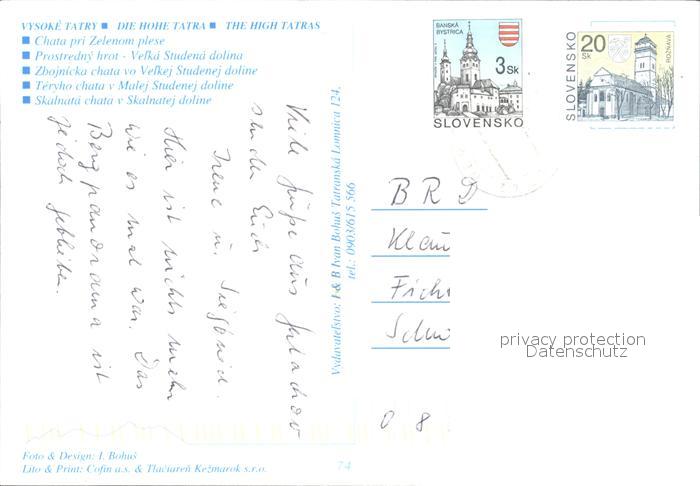 VYSOKÉ TATRY ■ DIE HOHE TATRA ■ THE HIGH TATRAS
■ Chata pri Zelenom plese
■ Prostredný hrot - Veľká Studená dolina
■ Zbojnícka chata vo Veľkej Studenej doline
■ Téryho chata v Malej Studenej doline
■ Skalnatá chata v Skalnatej doline
BANSKÁ
BYSTRICA
3 Sk
SLOVENSKO
SLOVENSKO
20
Sk
ROŽŇAVA
Viele Grüße aus
senden Euch
Irene u. Siegfried.
Hier ist nichts mehr
wie es mal war. Das
Bergpanorama ist
jedoch geblieben.
Vydavateľstvo: I & B Ivan Bohuš Tatranská Lomnica 124,
tel.: 0903/615 566
BRD
Klau
Fich
Schw
privacy protection
Datenschutz
0 8
Foto & Design: I. Bohuš
Lito & Print: Cofin a.s. & Tlačiareň Kežmarok s.r.o.
74